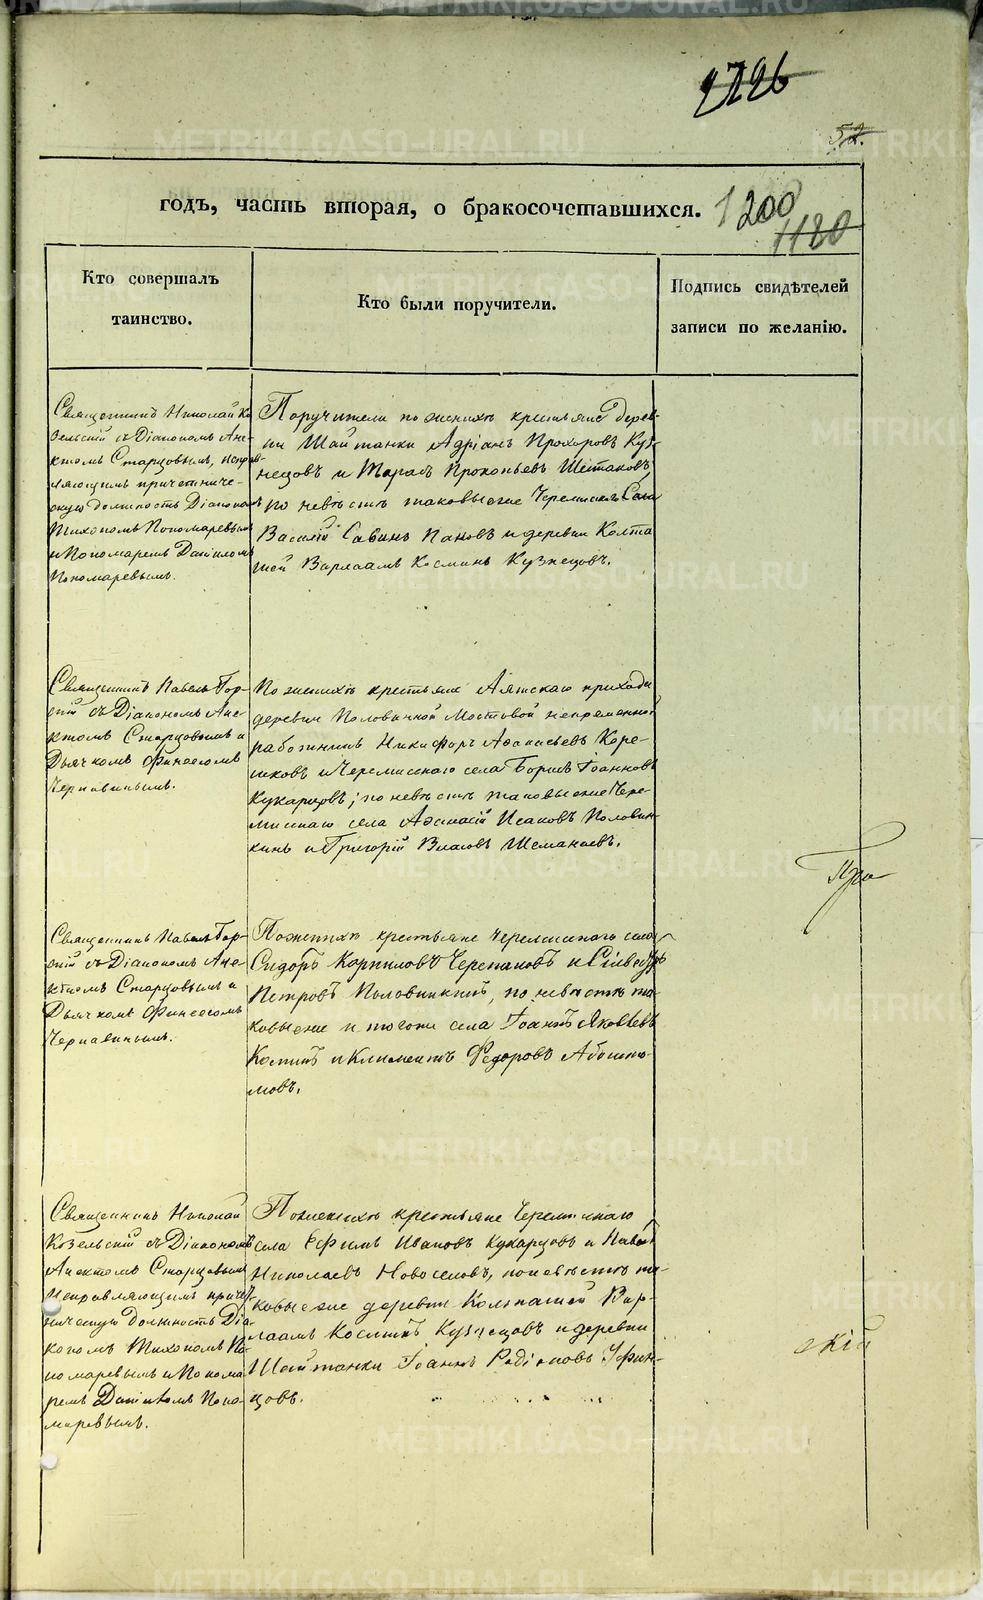 2726
52.
годъ, часть вторая, о бракосочетавшихся.
1200
1120
Кто совершалъ
таинство.
Кто были поручители.
Подпись свидѣтелей
записи по желанію.
Священникъ Николай Ко
зельскій съ Діакономъ Ане
ктомъ Старцовымъ, исправ-
ляющимъ причетниче-
скую должность Діакономъ
Тихономъ Пономаревымъ
и Пономаремъ Даніиломъ
Пономаревымъ.
Поручители по женихѣ крестьяне дерев-
ни Шайтанки Адріанъ Прохоровъ Куз-
нецовъ и Тарасъ Прокопьевъ Шестаковъ,
по невѣстѣ таковые же Черемисск. Села
Василій Савинъ Пановъ и деревни Колта
шей Варлаамъ Косминъ Кузнецовъ.
Священникъ Павелъ Гор-
скій съ Діакономъ Ане-
ктомъ Старцовымъ и
Дьячкомъ Финеесомъ
Чернавинымъ.
По женихѣ крестьяне Аятскаго прихода
деревни Половинной Мостовой непременной
работникъ Никифоръ Аѳанасьевъ Коре-
шковъ и Черемисскаго села Борисъ Іоанновъ
Кухарцовъ; по невѣстѣ таковые же Чере-
мисскаго села Аѳанасій Исаковъ Половин-
кинъ и Григорій Власовъ Шеманаевъ.
При
Священникъ Павелъ Гор-
скій съ Діакономъ Ане-
ктомъ Старцовымъ и
Дьячкомъ Финеесомъ
Чернавинымъ.
По женихѣ крестьяне Черемисскаго села
Сидоръ Корниловъ Черепановъ и
Петровъ Половинкинъ, по невѣстѣ та-
ковые же и тогоже села Іоаннъ Яковлевъ
и Климентъ Федоровъ
мовъ.
Священникъ Николай
Козельскій съ Діакономъ
Анектомъ Старцовымъ
исправляющимъ причет-
ническую должность Діа-
кономъ Тихономъ По-
номаревымъ и Понома-
ремъ Даніиломъ Поно-
маревымъ.
По женихѣ крестьяне Черемисскаго
села Ефимъ Ивановъ Кухарцовъ и Павелъ
Николаевъ Новоселовъ, по невѣстѣ та-
ковые же деревни Колташей Вар-
лаамъ Косминъ Кузнецовъ и деревни
Шайтанки Іоаннъ Родіоновъ Уфин-
цовъ.
скій
METRIKI.GASO-URAL.RU